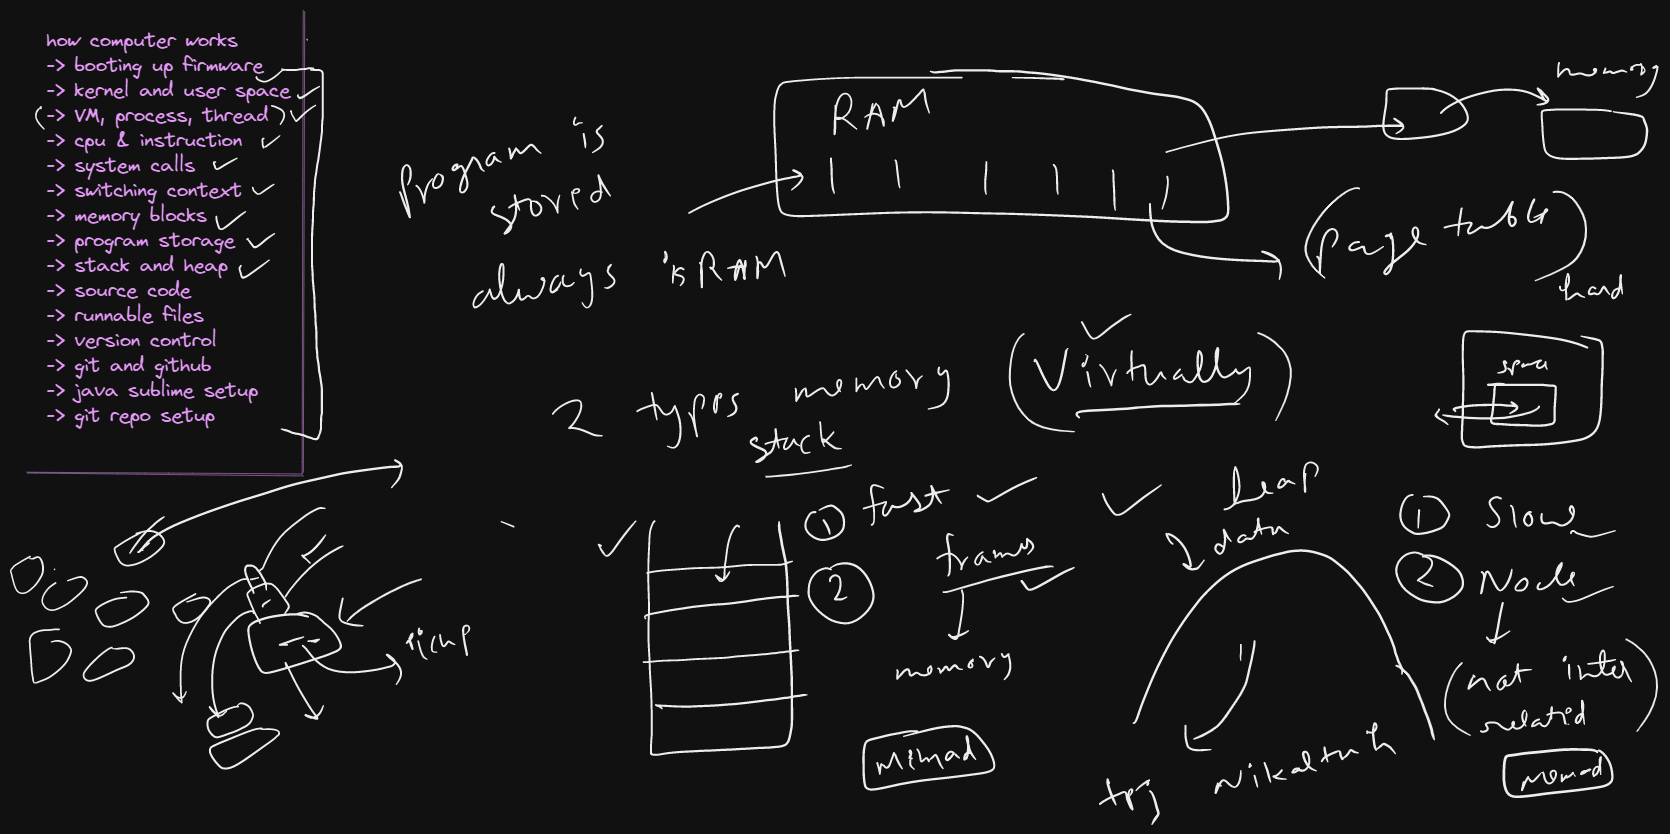 how computer works
-> booting up firmware
-> kernel and user space
(-> VM, process, thread)
-> cpu & instruction
-> system calls
-> switching context
-> memory blocks
-> program storage
-> stack and heap
-> source code
-> runnable files
-> version control
-> git and github
-> java sublime setup
-> git repo setup
Program is
stored
always is RAM
RAM
memory
(page table)
hard
2 types memory (Virtually)
stack
① fast
② frames
memory
heap
data
① Slow
② Node
(not inter
related)